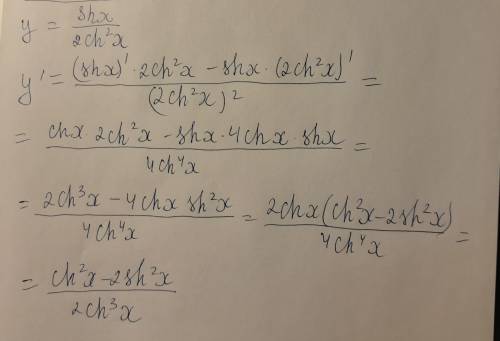 y = shx / 2ch²x
y' = ((shx)' · 2ch²x - shx · (2ch²x)') / (2ch²x)² =
= (chx · 2ch²x - shx · 4chx · shx) / 4ch⁴x =
= (2ch³x - 4chx sh²x) / 4ch⁴x = 2chx(ch²x - 2sh²x) / 4ch⁴x =
= (ch²x - 2sh²x) / 2ch³x